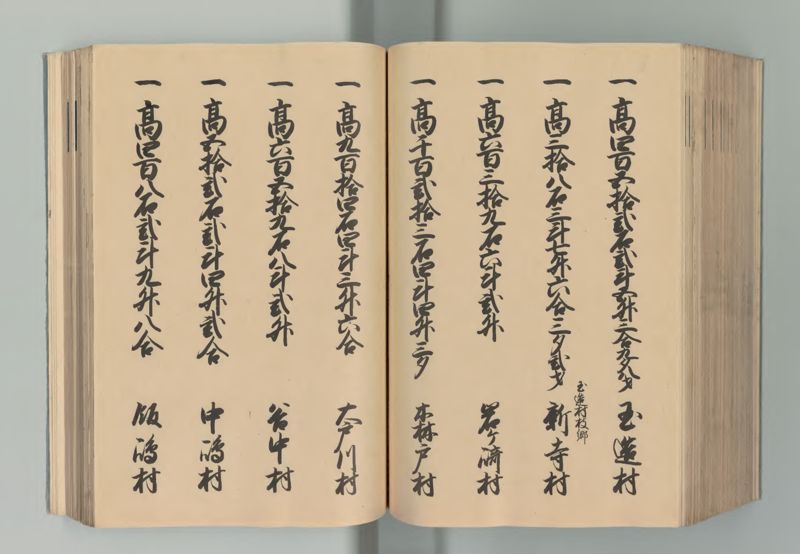 一 高四百五拾弐石弐斗五升三合九夕八才 玉造村
一 高三拾八石三斗七升六合三夕弐才 玉造村枝郷 新寺村
一 高六百三拾九石六斗弐升 岩ヶ崎村
一 高千百弐拾三石四斗四升三夕 本林戸村
一 高九百拾四石四斗三升六合 大戸川村
一 高六百五拾九石八斗弐升 谷中村
一 高五拾弐石弐斗四升弐合 中嶋村
一 高四百八石弐斗九升八合 飯嶋村